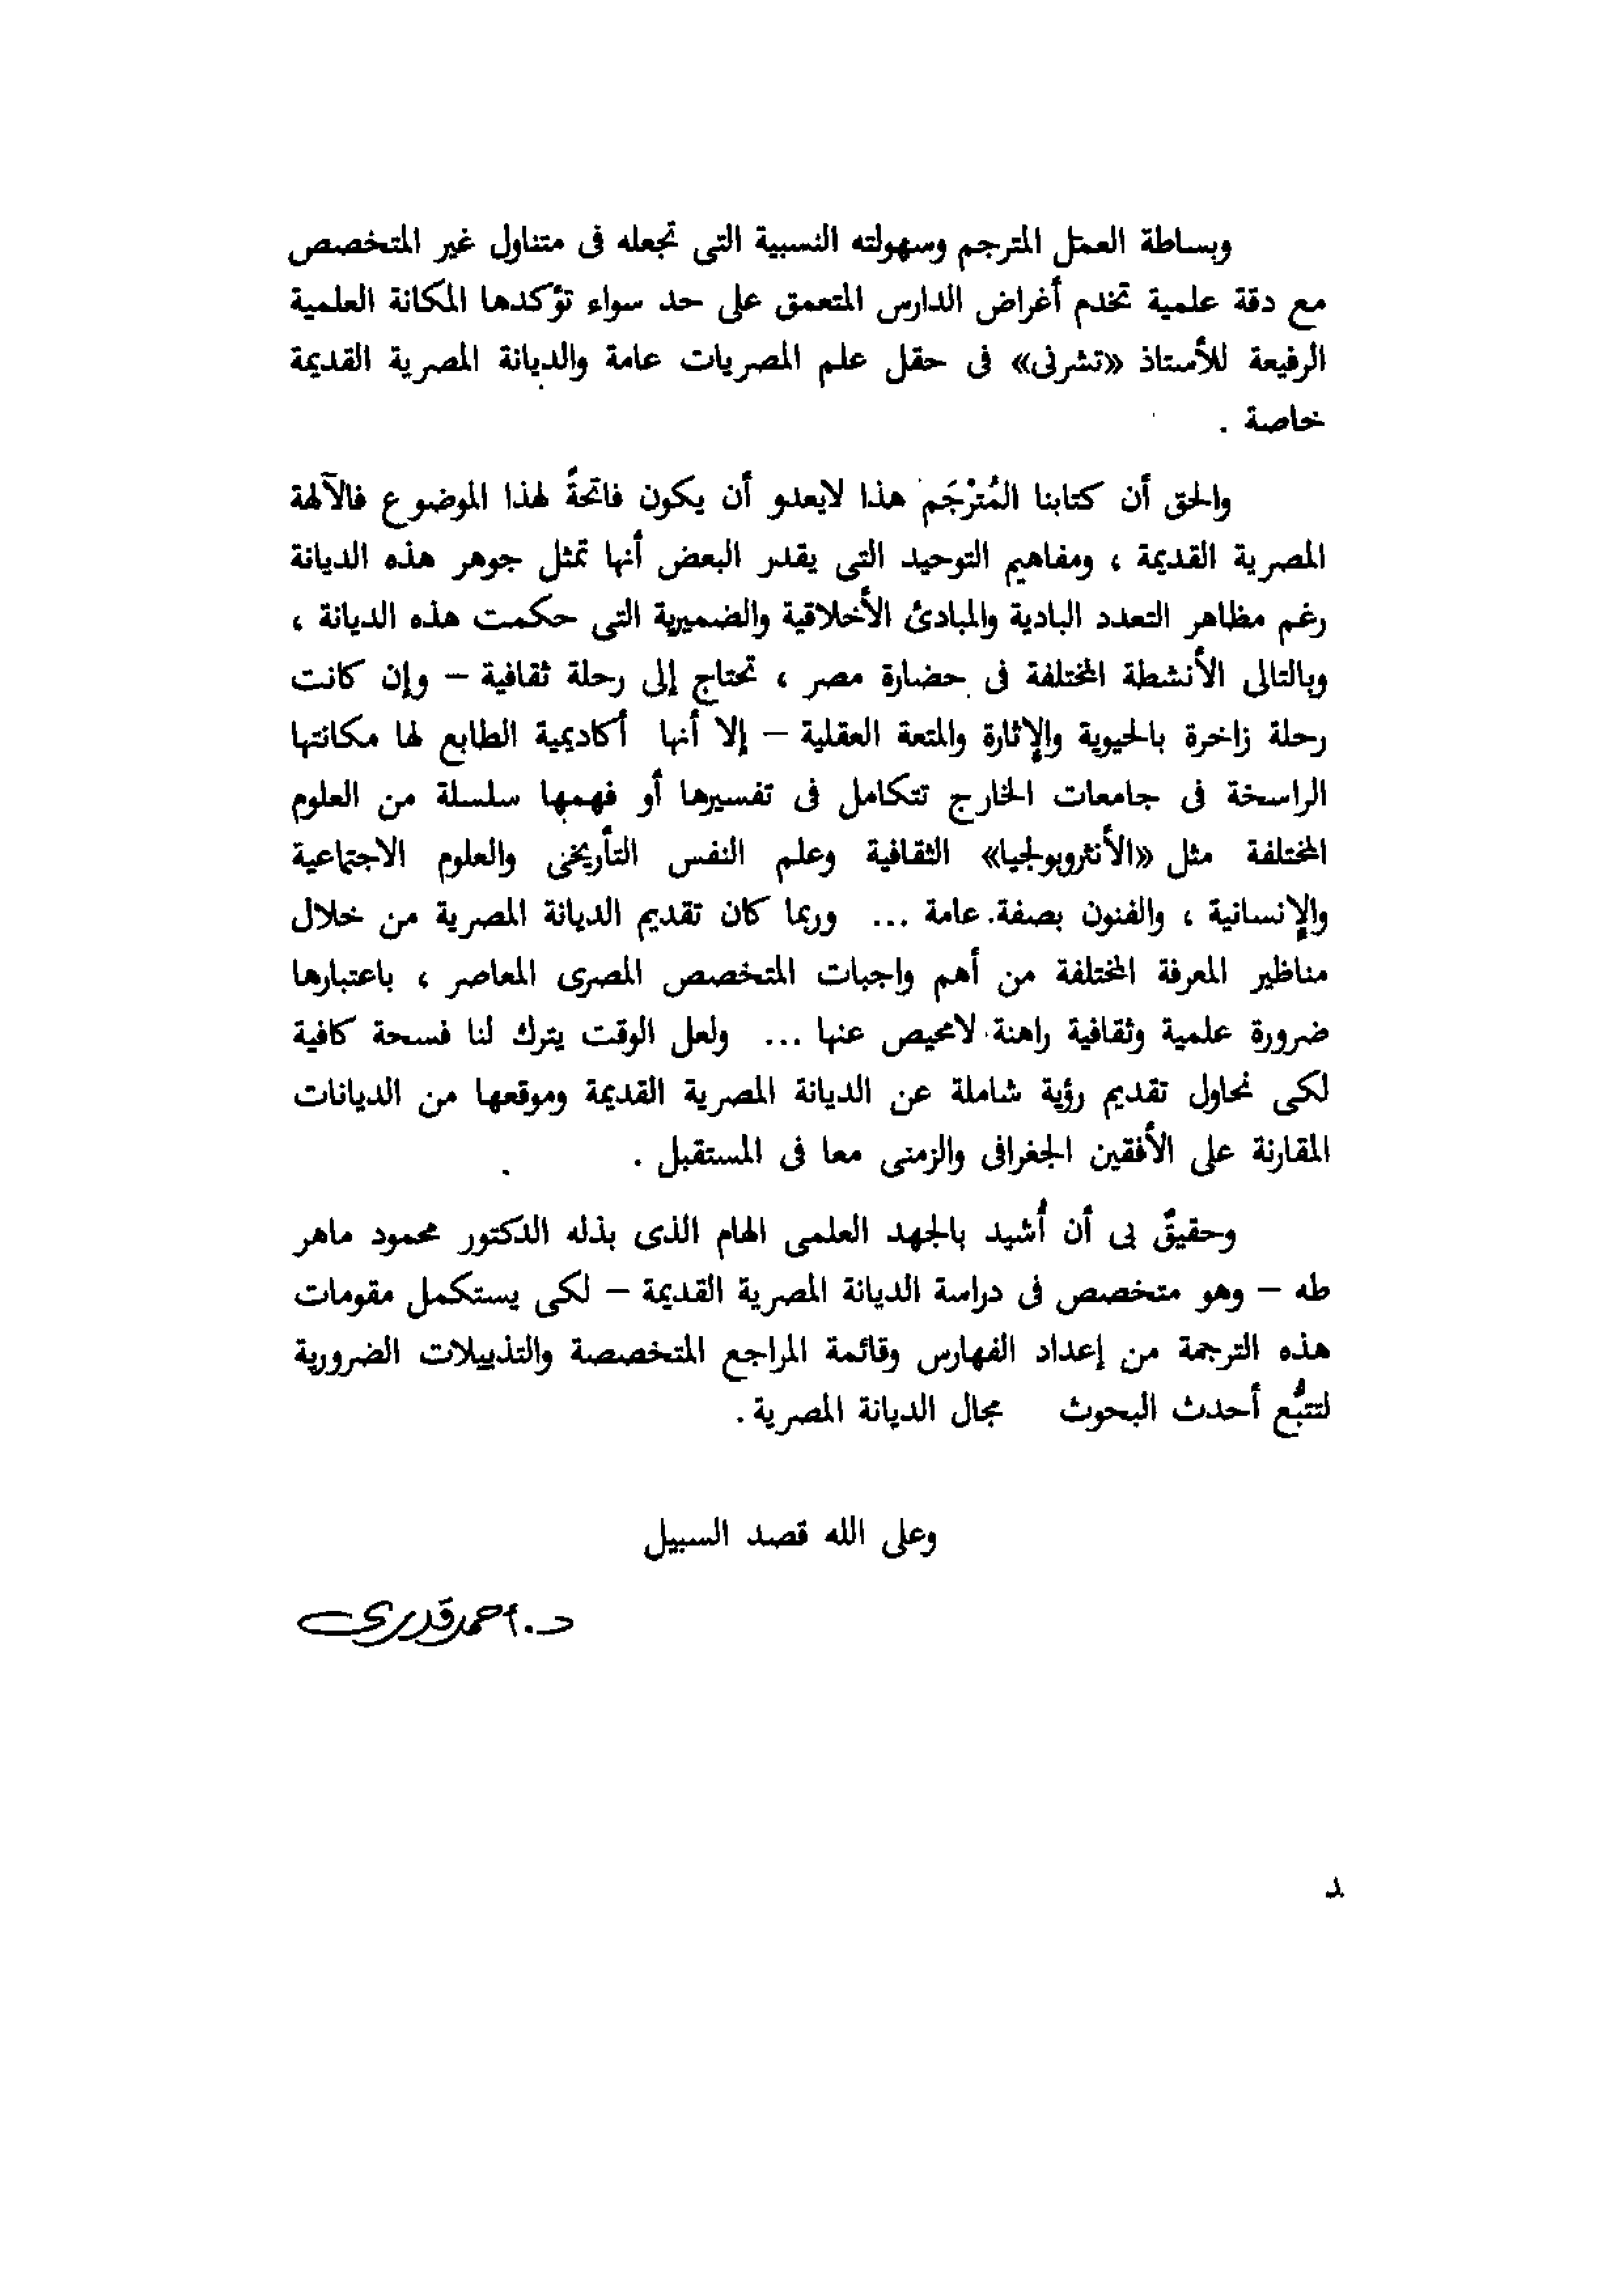 وبساطة العمل المترجم وسهولته النسبية التى تجعله فى متناول غير المتخصص
مع دقة علمية تخدم أغراض الدارس المتعمق على حد سواء تؤكدها المكانة العلمية
الرفيعة للأستاذ «تشرنى» فى حقل علم المصريات عامة والديانة المصرية القديمة
خاصة .
والحق أن كتابنا المُتَرْجَم هذا لايعدو أن يكون فاتحةً لهذا الموضوع فالآلهة
المصرية القديمة ، ومفاهيم التوحيد التى يقدر البعض أنها تمثل جوهر هذه الديانة
رغم مظاهر التعدد البادية والمبادئ الأخلاقية والضميرية التى حكمت هذه الديانة ،
وبالتالى الأنشطة المختلفة فى حضارة مصر ، تحتاج إلى رحلة ثقافية – وإن كانت
رحلة زاخرة بالحيوية والإثارة والمتعة العقلية – إلا أنها أكاديمية الطابع لها مكانتها
الراسخة فى جامعات الخارج تتكامل فى تفسيرها أو فهمها سلسلة من العلوم
المختلفة مثل «الأنثروبولجيا» الثقافية وعلم النفس التأريخى والعلوم الاجتماعية
والإنسانية ، والفنون بصفة عامة ... وربما كان تقديم الديانة المصرية من خلال
مناظير المعرفة المختلفة من أهم واجبات المتخصص المصرى المعاصر ، باعتبارها
ضرورة علمية وثقافية راهنة لامحيص عنها ... ولعل الوقت يترك لنا فسحة كافية
لكى نحاول تقديم رؤية شاملة عن الديانة المصرية القديمة وموقعها من الديانات
المقارنة على الأفقين الجغرافى والزمنى معا فى المستقبل .
وحقيقٌ بى أن أُشيد بالجهد العلمى الهام الذى بذله الدكتور محمود ماهر
طه – وهو متخصص فى دراسة الديانة المصرية القديمة – لكى يستكمل مقومات
هذه الترجمة من إعداد الفهارس وقائمة المراجع المتخصصة والتذييلات الضرورية
لتتبُّع أحدث البحوث مجال الديانة المصرية .
وعلى الله قصد السبيل
د. أحمد قدرى
د